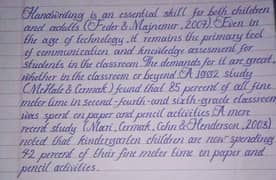 Handwriting is an essential skill for both children
and adults (Feder & Majnemer, 2007) Even in
the age of technology, it remains the primary tool
of communication and knowledge assessment for
students in the classroom. The demands for it are great,
whether in the classroom or beyond. A 1992 study
(McHale & Cermak) found that 85 percent of all fine
motor time in second-fourth-and sixth-grade classrooms
was spent on paper and pencil activities. A more
recent study (Marr, Cermak, Cohn & Henderson, 2003)
noted that kindergarten children are now spending
42 percent of their fine motor time on paper and
pencil activities.